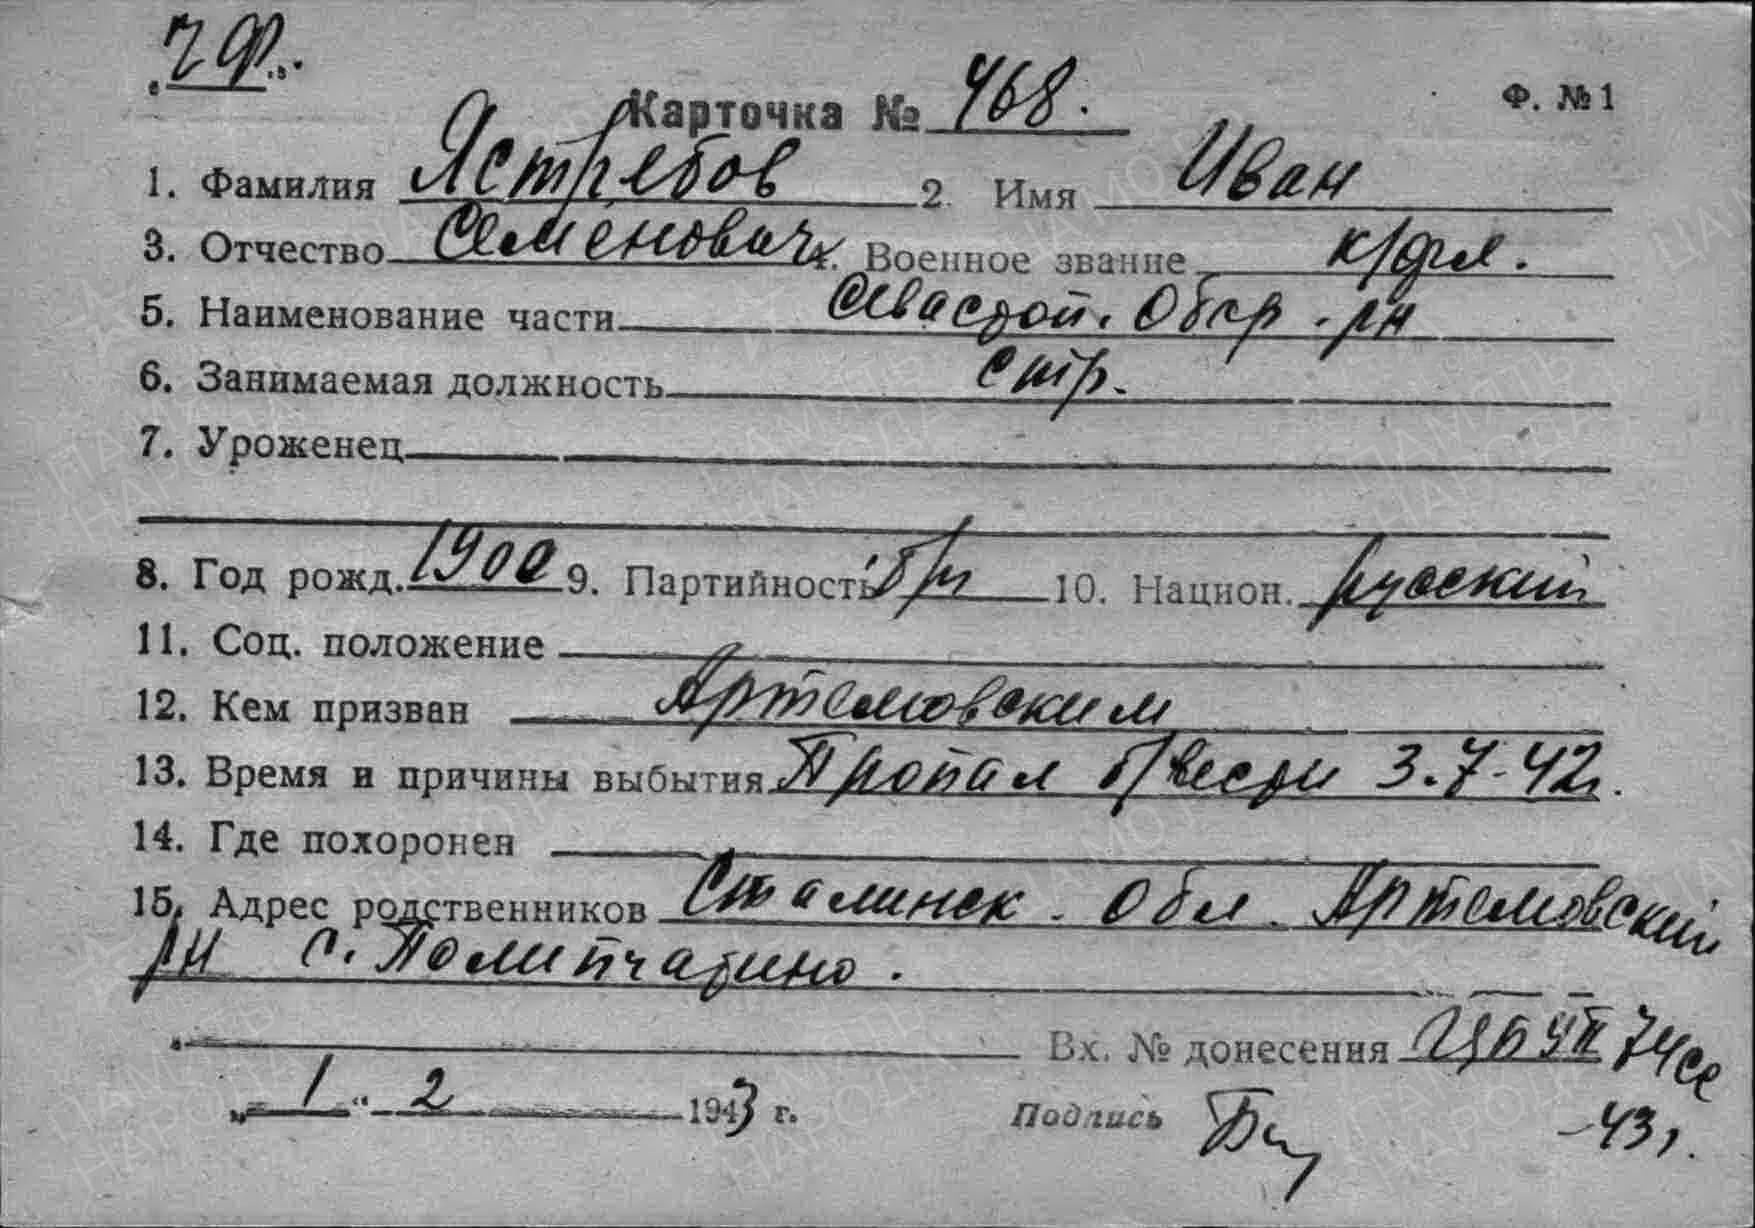 „ЧФ".
Карточка № 468.
Ф. № 1
1. Фамилия Ястребов 2. Имя Иван
3. Отчество Семенович 4. Военное звание к/фл.
5. Наименование части Севастоп. Обор. рн
6. Занимаемая должность стр.
7. Уроженец
8. Год рожд. 1900 9. Партийность б/п 10. Национ. русский
11. Соц. положение
12. Кем призван Артемовским
13. Время и причины выбытия Пропал б/вести 3.7-42г.
14. Где похоронен
15. Адрес родственников Сталинск. Обл. Артемовский
рн с.
Вх. № донесения 74сс
-43г.
„1" 2 1943 г. Подпись